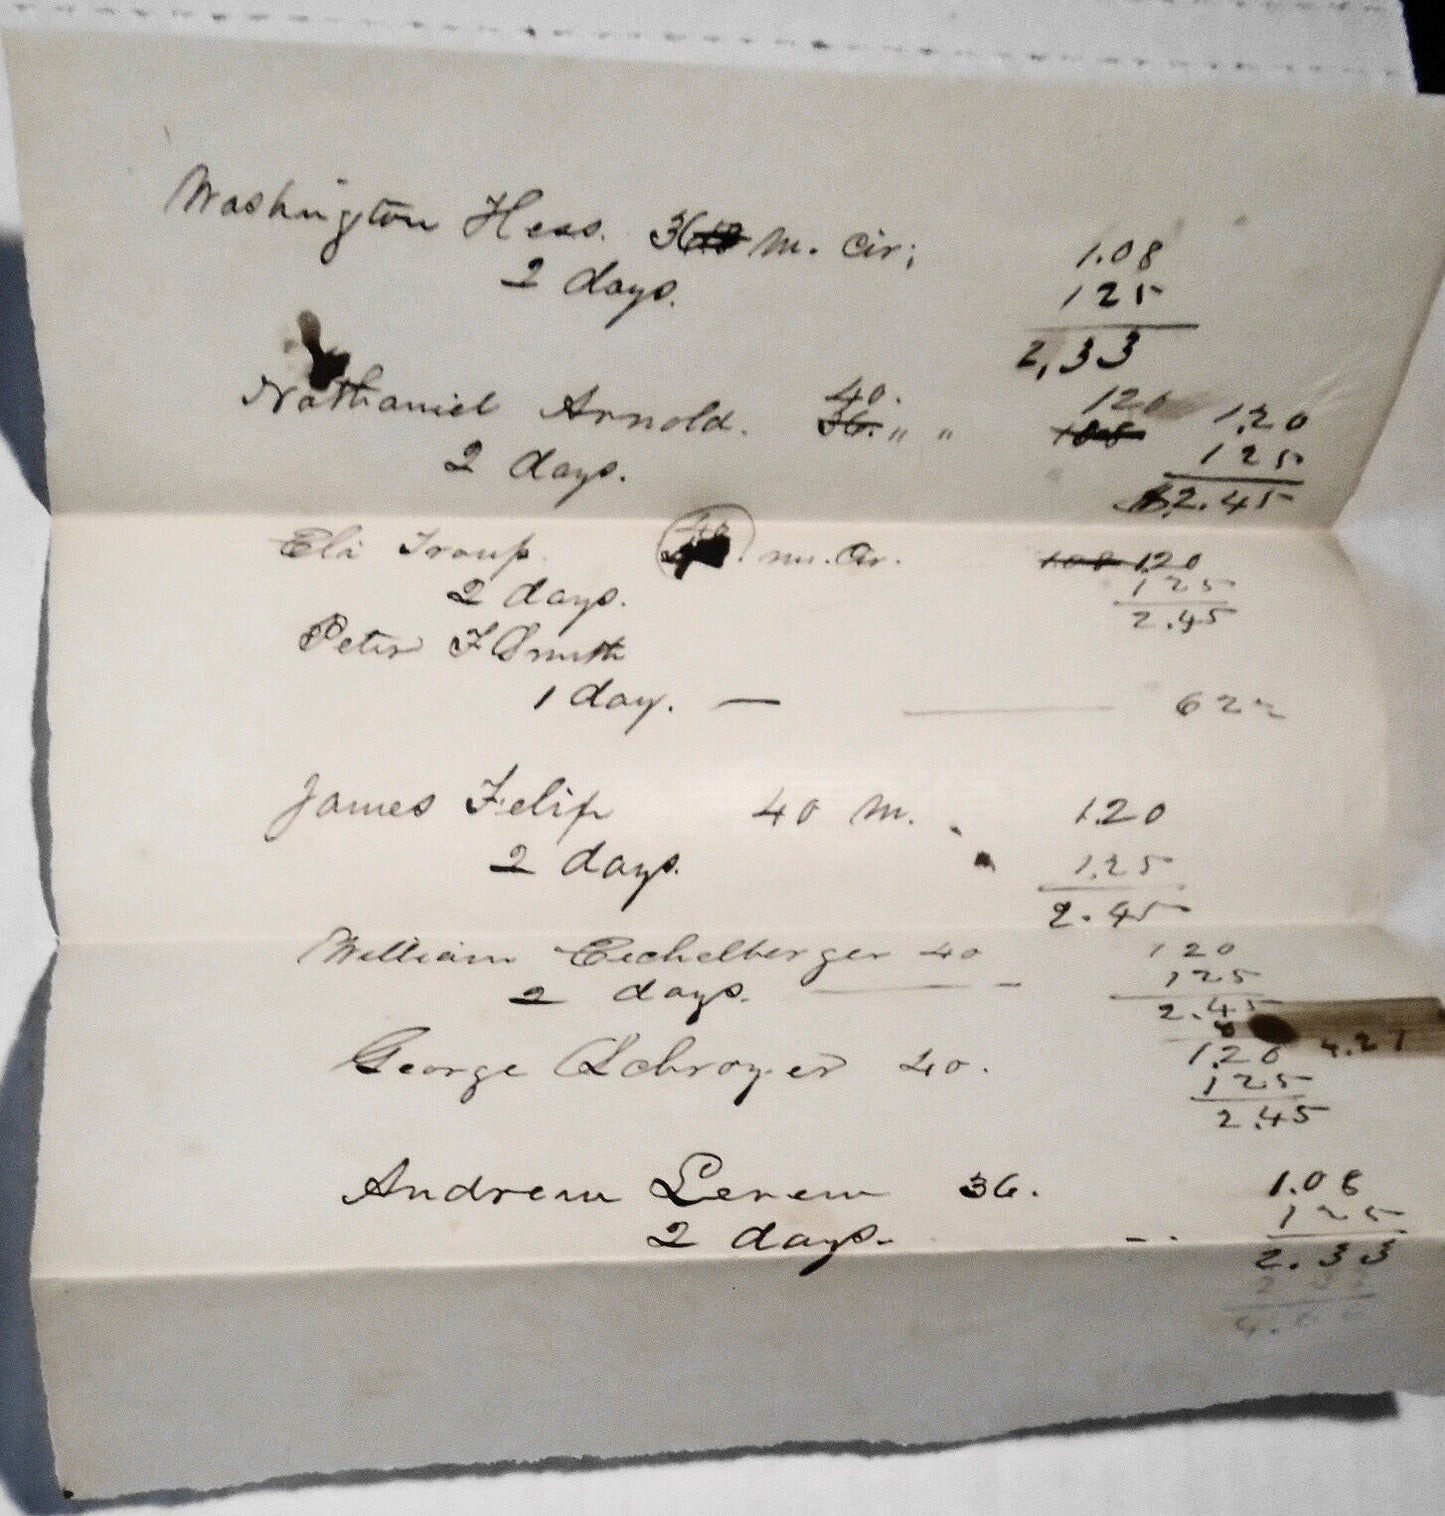 Washington Hess. 36 m. cir; 1.08
2 days. 125
2,33
Nathaniel Arnold. 40. 120 1.20
36. " " 108 125
2 days. 2.45
Eli Troup. m. Cir. 108 120
2 days. 125
2.45
Peter F Smith
1 day. — 62
James Felip 40 m. 1.20
2 days. 1.25
2.45
William Eechelberger 40 120
2 days. 125
2.45
George Schroyer 40. 1.20 4.21
125
2.45
Andrew Lerew 36. 1.08
2 days. 125
2.33